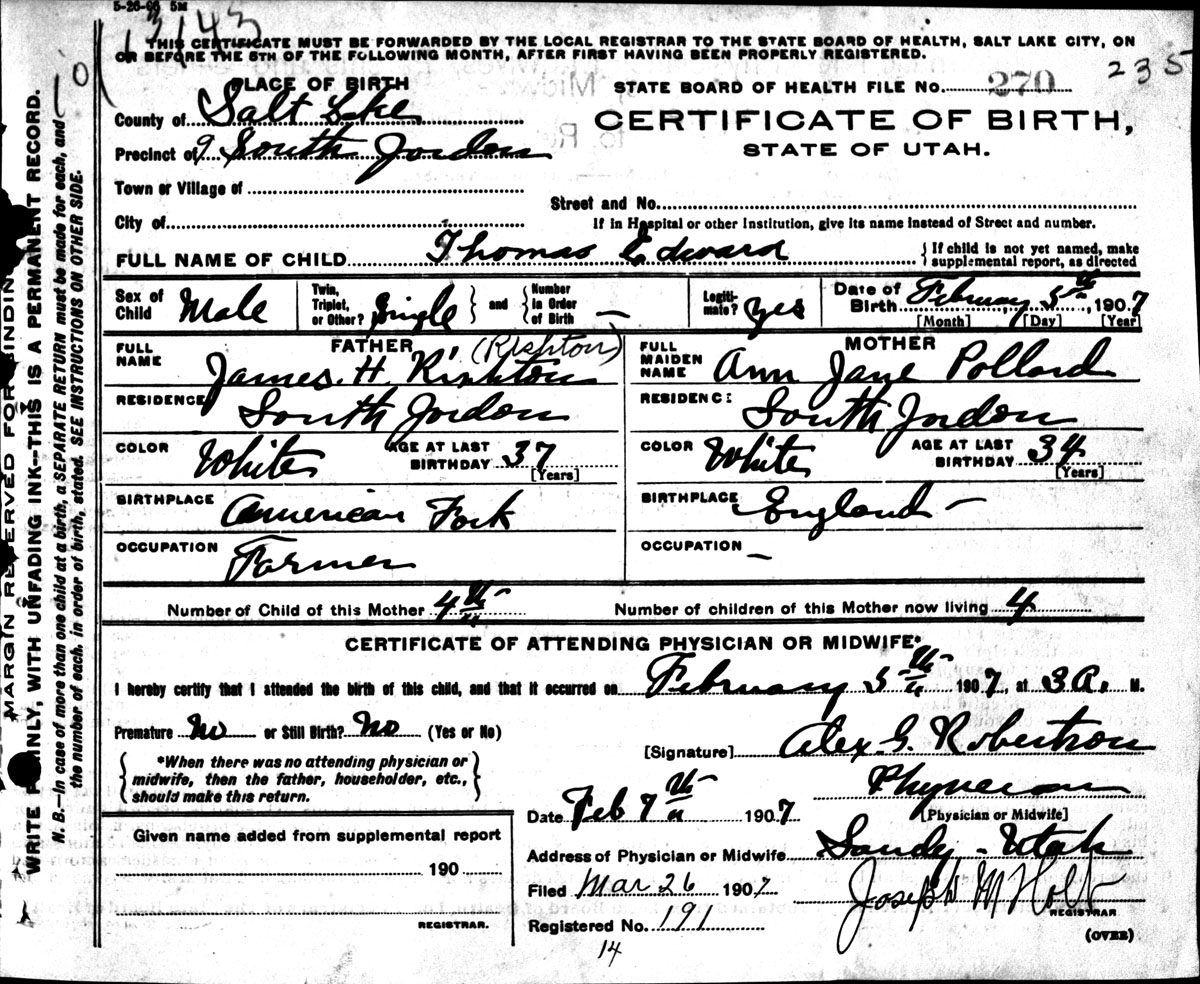 5-26-06 5M
13143
THIS CERTIFICATE MUST BE FORWARDED BY THE LOCAL REGISTRAR TO THE STATE BOARD OF HEALTH, SALT LAKE CITY, ON
OR BEFORE THE 5TH OF THE FOLLOWING MONTH, AFTER FIRST HAVING BEEN PROPERLY REGISTERED.
235
PLACE OF BIRTH
STATE BOARD OF HEALTH FILE No. 270
County of Salt Lke
CERTIFICATE OF BIRTH,
Precinct of 9 South Jordon
STATE OF UTAH.
Town or Village of
Street and No.
City of
If in Hospital or other Institution, give its name instead of Street and number.
FULL NAME OF CHILD Thomas Edward
If child is not yet named, make
supplemental report, as directed
Sex of Child Male
Twin, Triplet, or Other? Single and Number in Order of Birth —
Legiti-mate? Yes
Date of Birth February 5th, 1907
[Month] [Day] [Year]
FATHER
FULL NAME James. H. Rishton (Rishton)
MOTHER
FULL MAIDEN NAME Ann Jane Pollard
RESIDENCE South Jordon
RESIDENCE South Jordon
COLOR White AGE AT LAST BIRTHDAY 37 [Years]
COLOR White AGE AT LAST BIRTHDAY 34 [Years]
BIRTHPLACE American Fork
BIRTHPLACE England —
OCCUPATION Farmer
OCCUPATION —
Number of Child of this Mother 4th
Number of children of this Mother now living 4
CERTIFICATE OF ATTENDING PHYSICIAN OR MIDWIFE*
I hereby certify that I attended the birth of this child, and that it occurred on February 5th 1907, at 3 A. M.
Premature No or Still Birth? No (Yes or No)
[Signature] Alex. G. Robertson
*When there was no attending physician or
midwife, then the father, householder, etc.,
should make this return.
Physician
[Physician or Midwife]
Date Feb 7th 1907
Given name added from supplemental report
190
REGISTRAR.
Address of Physician or Midwife Sandy - Utah
Filed Mar 26 1907
Joseph M Holt
REGISTRAR
Registered No. 191
(OVER)
14
MARGIN RESERVED FOR BINDING
WRITE PLAINLY, WITH UNFADING INK—THIS IS A PERMANENT RECORD.
N. B.—In case of more than one child at a birth, a SEPARATE RETURN must be made for each, and
the number of each, in order of birth, stated. SEE INSTRUCTIONS ON OTHER SIDE.